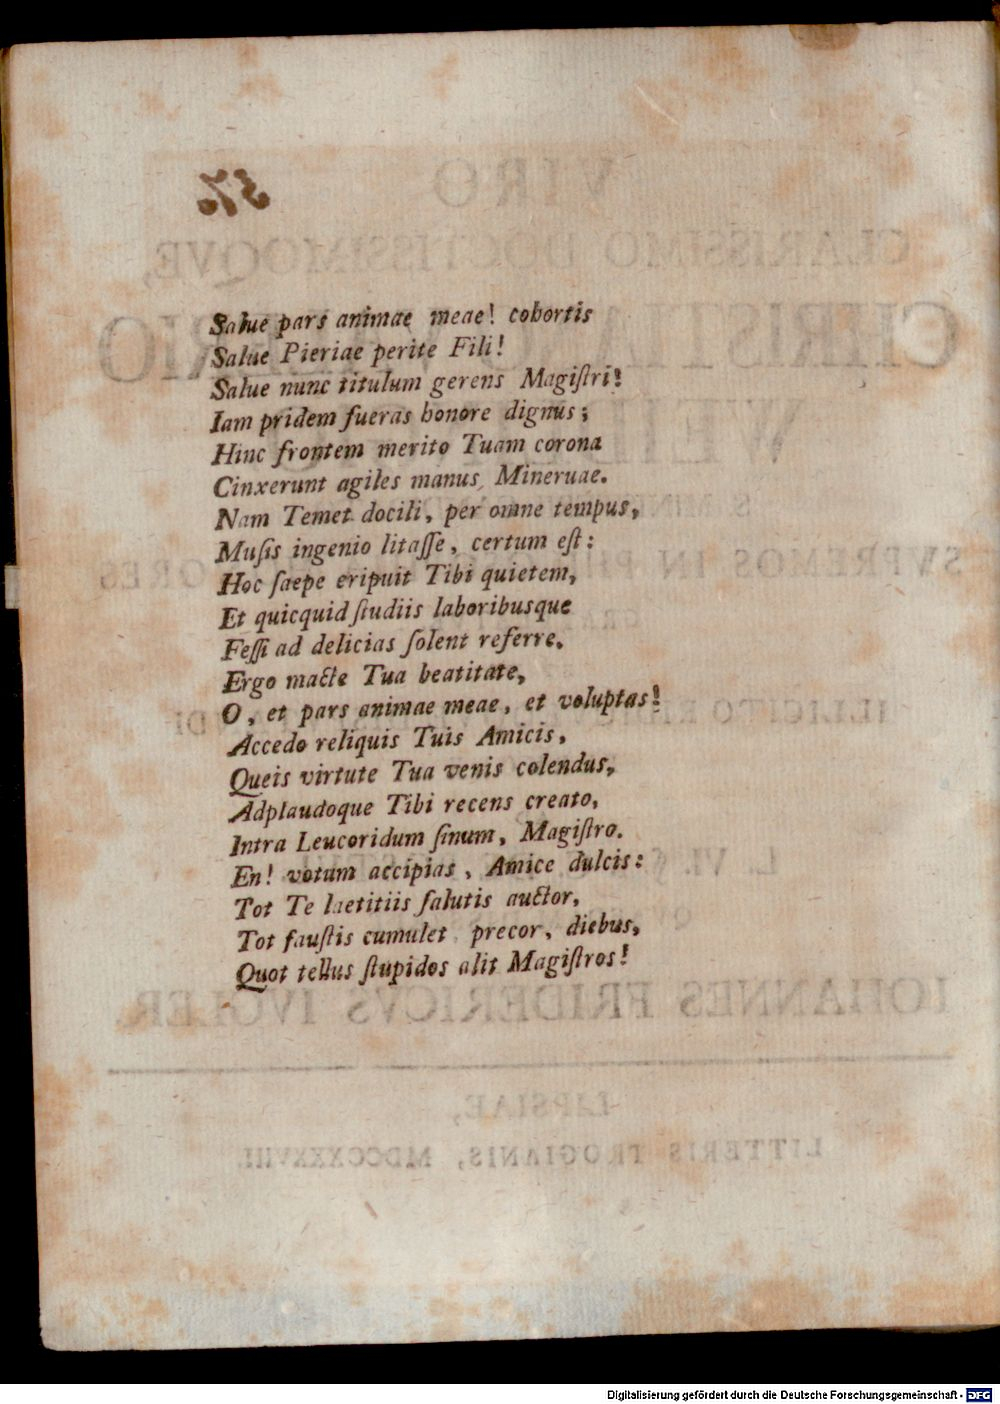 Salue pars animae meae! cohortis
Salue Pieriae perite Fili!
Salue nunc titulum gerens Magiſtri!
Iam pridem fueras honore dignus;
Hinc frontem merito Tuam corona
Cinxerunt agiles manus Mineruae.
Nam Temet docili, per omne tempus,
Muſis ingenio litaſſe, certum eſt:
Hoc ſaepe eripuit Tibi quietem,
Et quicquid ſtudiis laboribusque
Feſſi ad delicias ſolent referre.
Ergo macte Tua beatitate,
O, et pars animae meae, et voluptas!
Accedo reliquis Tuis Amicis,
Queis virtute Tua venis colendus,
Adplaudoque Tibi recens creato,
Intra Leucoridum ſinum, Magiſtro.
En! votum accipias, Amice dulcis:
Tot Te laetitiis ſalutis auctor,
Tot fauſtis cumulet precor, diebus,
Quot tellus ſtupidos alit Magiſtros!
Digitalisierung gefördert durch die Deutsche Forschungsgemeinschaft - DFG